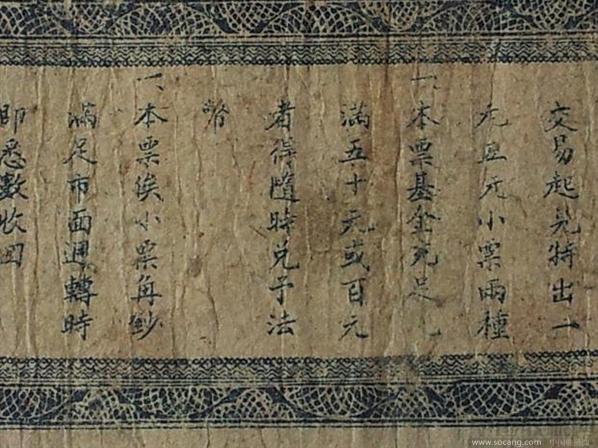 交易起見特出一
元五元小票兩種
一、本票基金充足凡
滿五十元或百元
者得隨時兌予法
幣
一、本票俟小票角鈔
滿足市面週轉時
即悉數收回
www.socang.com